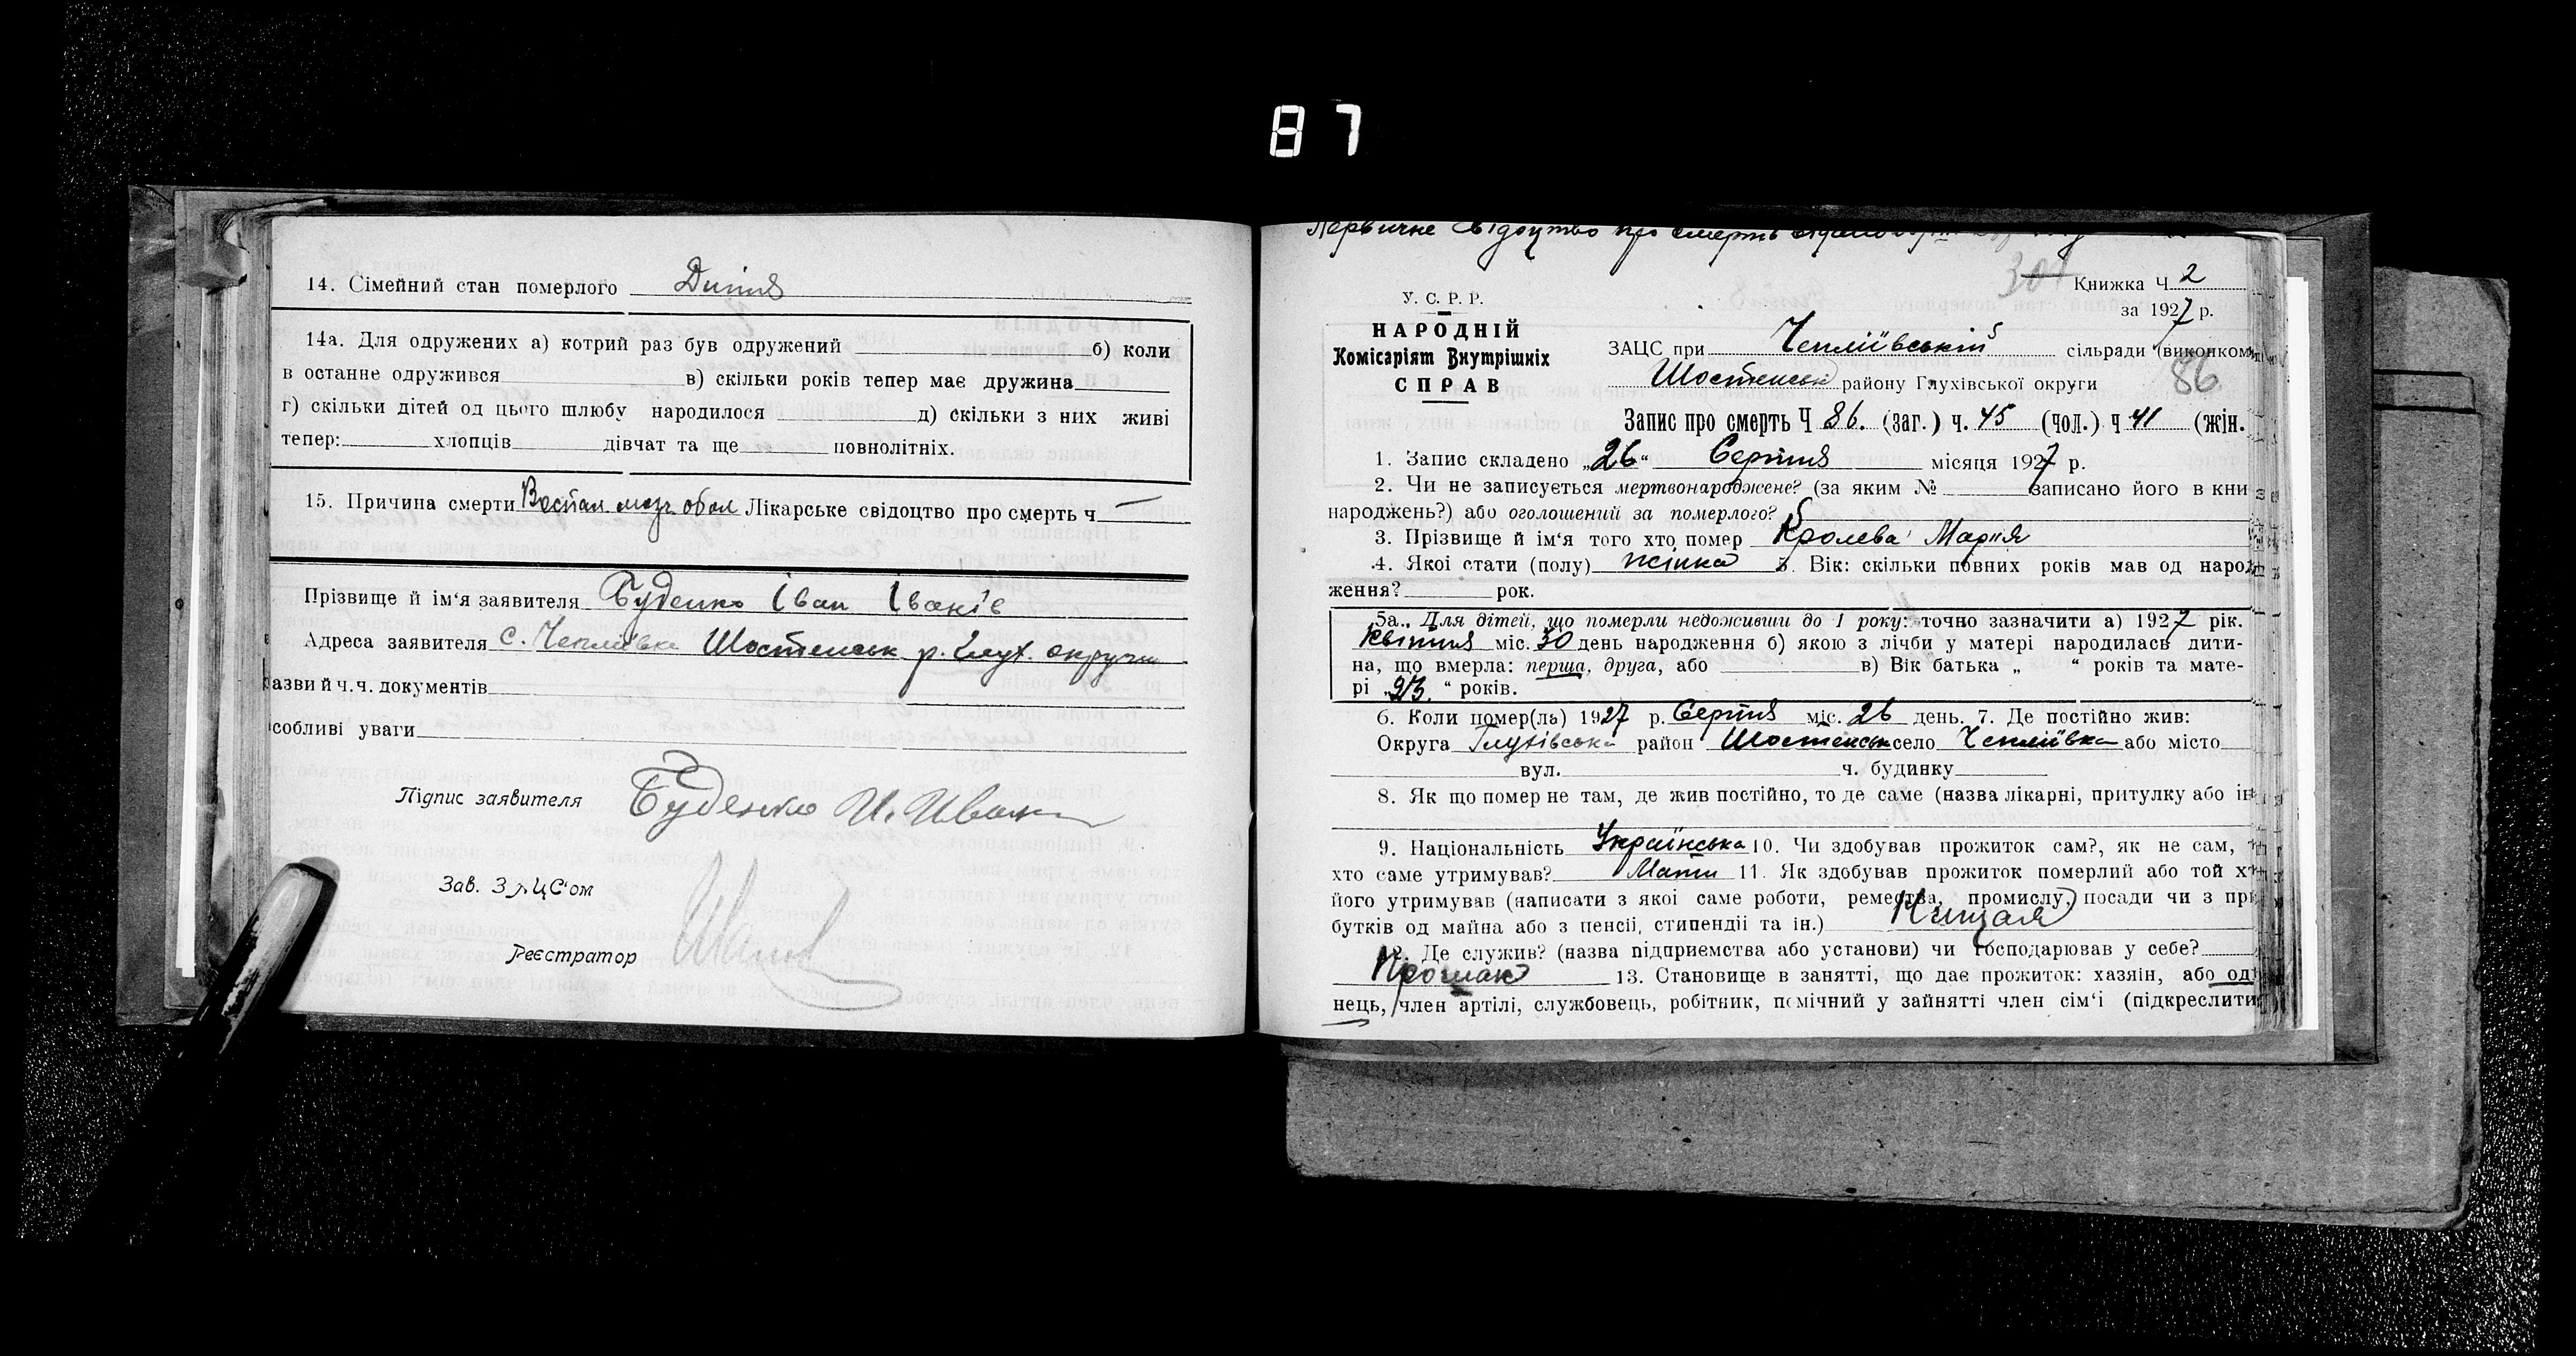 87
14. Сімейний стан померлого Дитя
14а. Для одружених а) котрий раз був одружений б) коли
в останне одружився в) скільки років тепер має дружина
г) скільки дітей од цього шлюбу народилося д) скільки з них живі
тепер: хлопців дівчат та ще повнолітніх.
15. Причина смерти Воспал мозг обол Лікарське свідоцтво про смерть ч —
Прізвище й ім'я заявителя Буденко Іван Іванів
Адреса заявителя с. Чепліївка Шостенськ р. Глух. округи
азви й ч.ч. документів
собливі уваги
Підпис заявителя Буденко И. Иван
Зав. ЗАЦС'ом
Реєстратор
Первичне свідоцтво про смерть
301
Книжка Ч 2
У. С. Р. Р.
за 1927 р.
НАРОДНІЙ
Комісаріят Внутрішніх
СПРАВ
ЗАЦС при Чепліївській сільради (виконком
Шостенськ району Глухівської округи
86
Запис про смерть Ч 86. (заг.) ч. 45 (чол.) ч 41 (жін.
1. Запис складено „26“ Серпня місяця 1927 р.
2. Чи не записується мертвонароджене? (за яким № записано його в кни
народжень?) або оголошений за померлого?
3. Прізвище й ім'я того хто помер Кролева Мария
4. Якої стати (полу) жінка 5. Вік: скільки повних років мав од народ
ження? рок.
5а. Для дітей, що померли недоживши до 1 року: точно зазначити а) 1927 рік.
Квітня міс. 30 день народження б) якою з лічби у матері народилась дити-
на, що вмерла: перша, друга, або в) Вік батька „ “ років та мате-
рі „23.“ років.
6. Коли помер(ла) 1927 р. Серпня міс. 26 день. 7. Де постійно жив:
Округа Глухівська район Шостенськ село Чепліївка або місто
вул. ч. будинку
8. Як що помер не там, де жив постійно, то де саме (назва лікарні, притулку або ін
9. Національність Українська 10. Чи здобував прожиток сам?, як не сам,
хто саме утримував? Мати 11. Як здобував прожиток померлий або той х
його утримував (написати з якої саме роботи, ремества, промислу, посади чи з при
бутків од майна або з пенсії, стипендії та ін.) Нищая
12. Де служив? (назва підприємства або установи) чи господарював у себе?
13. Становище в занятті, що дає прожиток: хазяін, або оди
нець, член артілі, службовець, робітник, помічний у зайнятті член сім'і (підкреслити